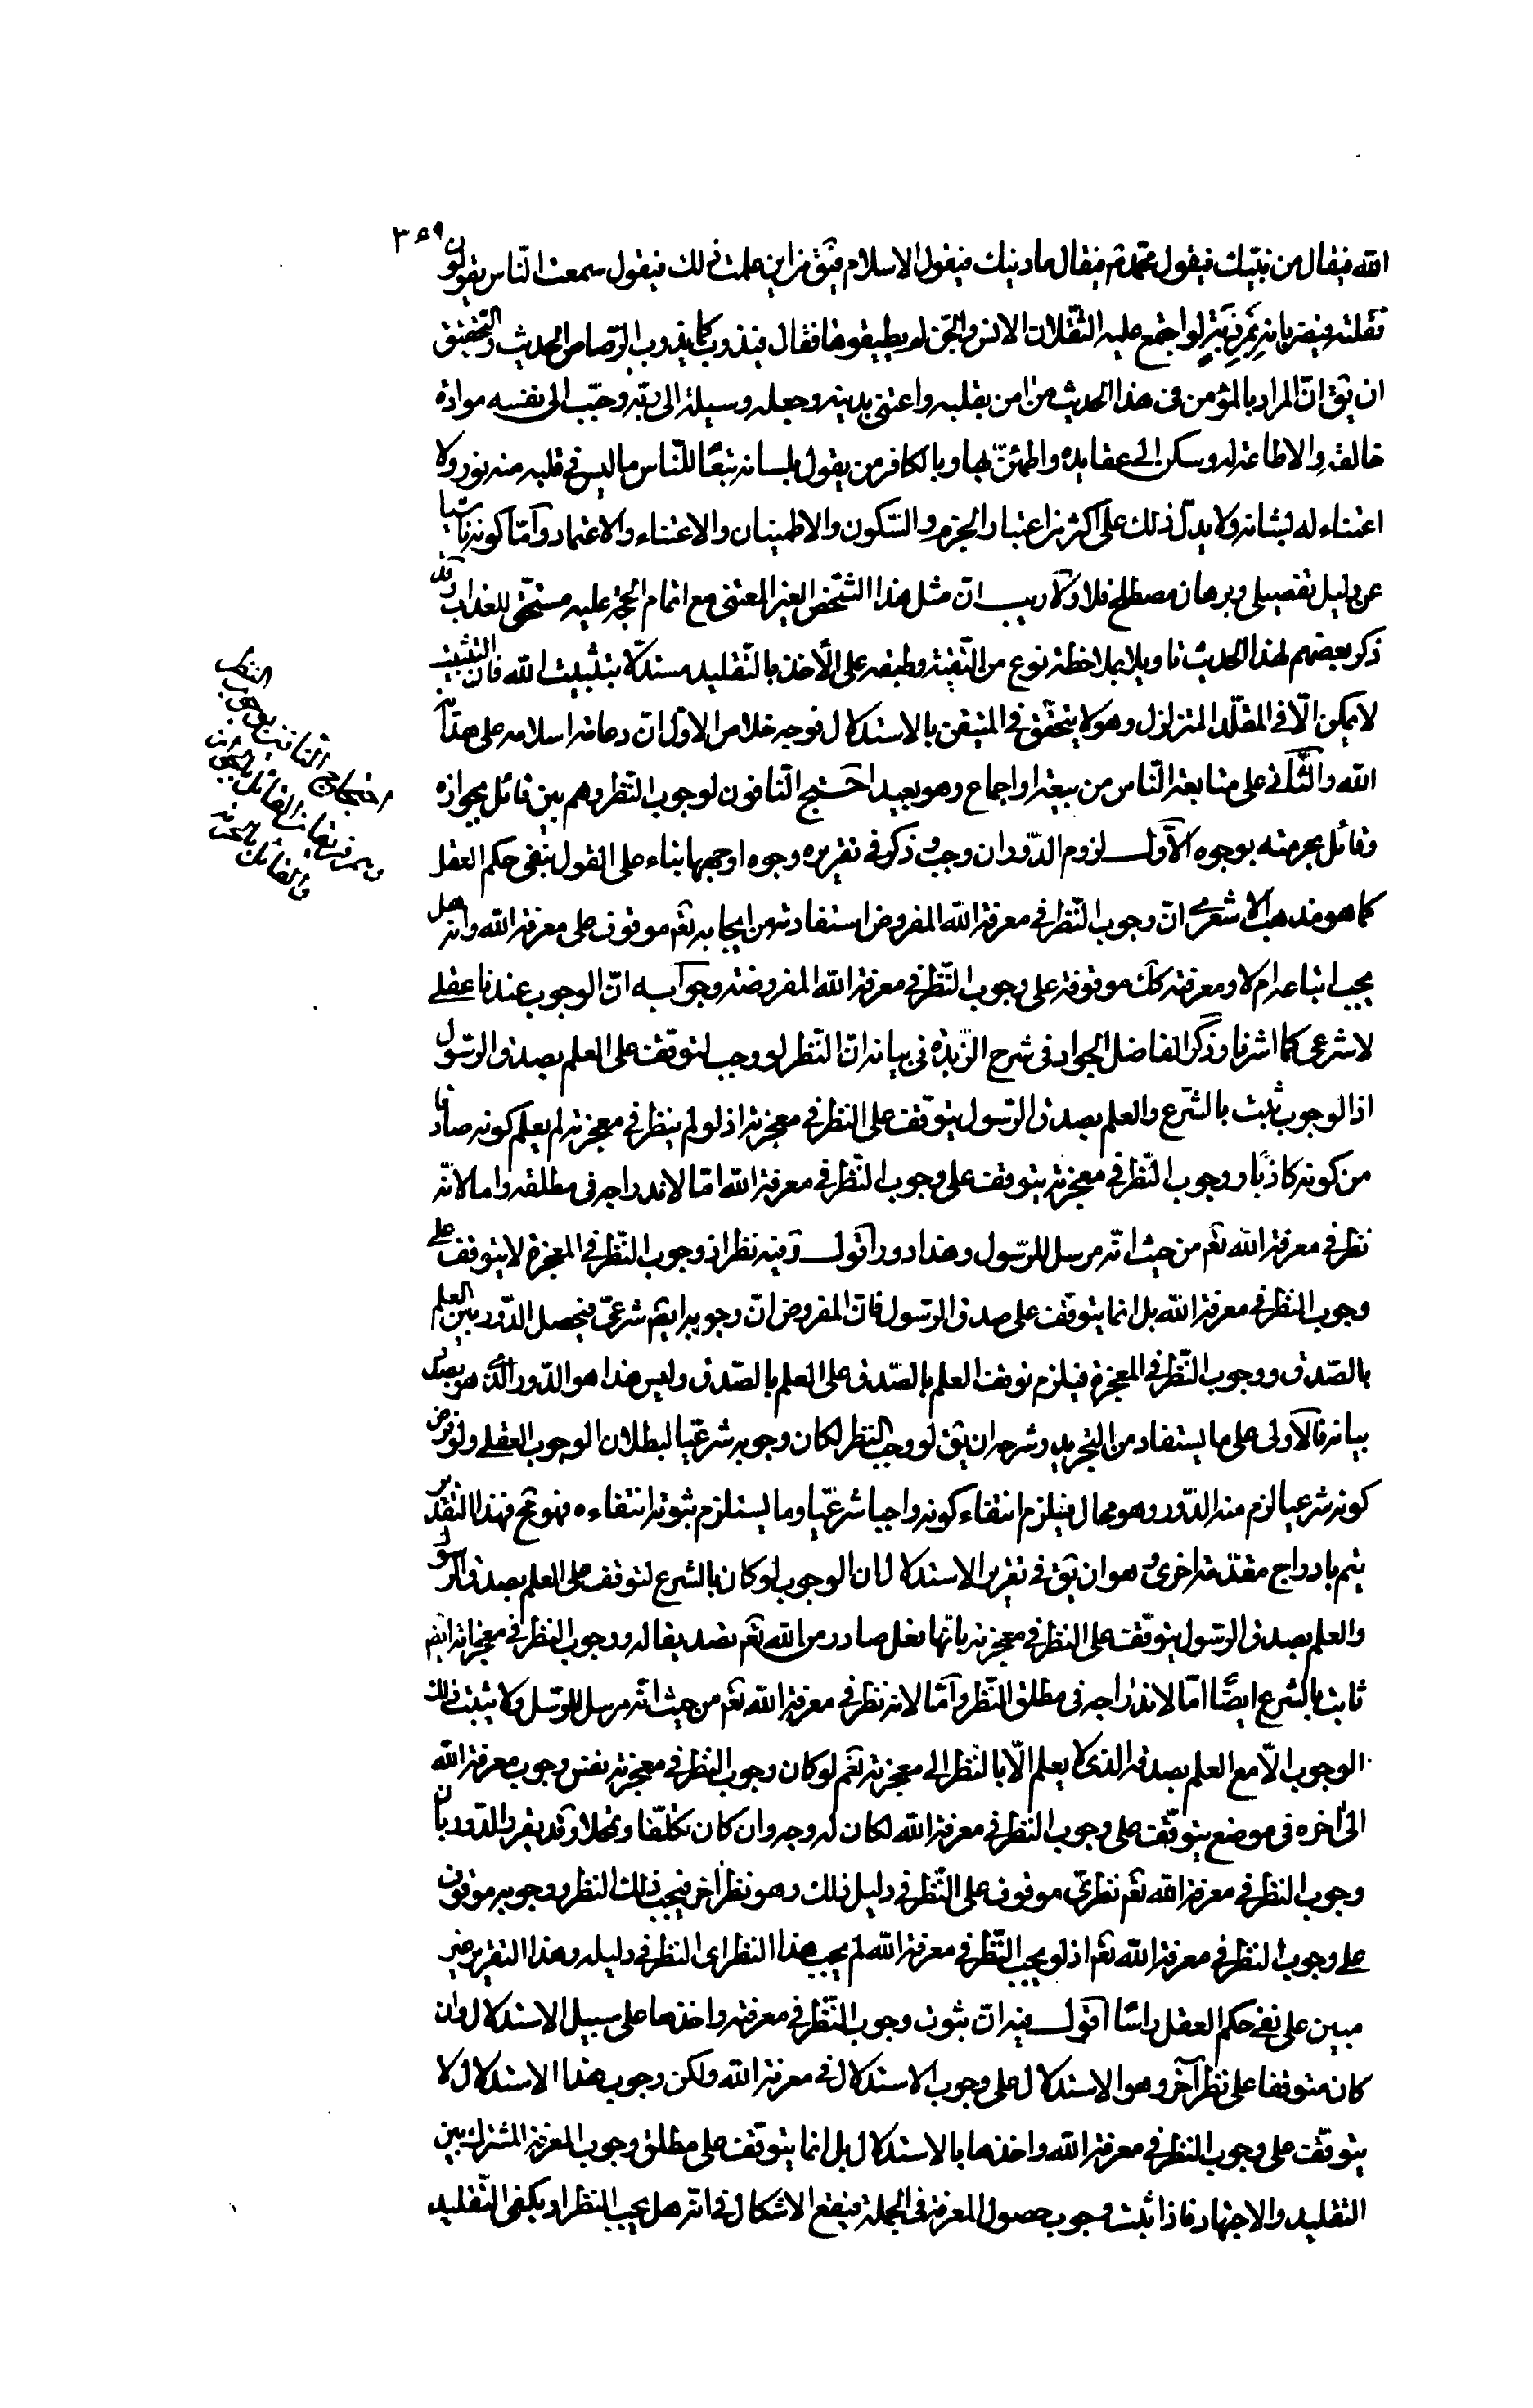 ۳۶۹
الله فيقال من نبيّك فيقول محمّد ص فيقال ما دينك فيقول الاسلام فيق من اين علمت ذلك فيقول سمعت النّاس يقولون
فقلته فيضربانه بمرزبة لو اجتمع عليه الثّقلان الانس والجنّ لم يطيقوها فقال فيذوب كما يذوب الرّصاص الحديث والتّحقيق
ان يق انّ المراد بالمؤمن فى هذا الحديث من امن بقلبه واعتنى بدينه وجعله وسيلة الى ربّه وحبّب الى نفسه موادّة
خالقه والاطاعة له وسكن الى عقايده واطمئنّ بها وبالكافر من يقول بلسانه تبعًا للنّاس ما ليس فى قلبه منه نور ولا
اعتناء له بشانه ولا يدلّ ذلك على اكثر من اعتبار الجزم والسّكون والاطمينان والاعتناء والاعتماد وامّا كونه ناشيا
عن دليل تفصيلى وبرهان مصطلح فلا ولا ريب انّ مثل هذا الشّخص الغير المعتنى مع اتمام الحجّة عليه مستحقّ للعذاب وقد
ذكر بعضهم لهذا الحديث تاويلا بملاحظة نوع من التّقيّة وطبقه على الأخذ بالتّقليد مستدلّا بتثبيت الله فانّ التّثبيت
لا يمكن الّا فى المقلّد المتزلزل وهو لا يتحقّق فى المتيقن بالاستدلال فوجه خلاص الاوّل انّ دعامة اسلامه على هداية
الله والثّانى على متابعة النّاس من بيعة او اجماع وهو بعيد احتج النّافون لوجوب النّظر وهم بين قائل بجوازه
وقائل بحرمته بوجوه الاوّل لزوم الدّور ان وجب وذكر فى تقريره وجوه اوجهها بناء على القول بنفى حكم العقل
كما هو مذهب الاشعرى انّ وجوب النّظر فى معرفة الله المفروض استفادته من ايجابه تعم موقوف على معرفة الله وانّه هل
يجب اتباعه ام لا ومعرفته كك موقوفة على وجوب النّظر فى معرفة الله المفروضة وجوابه انّ الوجوب عندنا عقلى
لا شرعى كما اشرنا وذكر الفاضل الجواد فى شرح الزّبدة فى بيانه انّ النّظر لو وجب لتوقّف على العلم بصدق الرّسول
اذ الوجوب ثبت بالشّرع والعلم بصدق الرّسول يتوقّف على النّظر فى معجزته اذ لو لم ينظر فى معجزته لم يعلم كونه صادقا
من كونه كاذبًا ووجوب النّظر فى معجزته يتوقف على وجوب النّظر فى معرفة الله امّا لاندراجه فى مطلقه واما لانّه
نظر فى معرفة الله تعم من حيث انّه مرسل للرّسول وهذا دور اقول وفيه نظر اذ وجوب النّظر فى المعجزة لا يتوقف على
وجوب النّظر فى معرفة الله بل انما يتوقّف على صدق الرّسول فان المفروض انّ وجوبه ايضم شرعىّ فيحصل الدّور بين العلم
بالصّدق ووجوب النّظر فى المعجزة فيلزم توقف العلم بالصّدق على العلم بالصّدق وليس هذا هو الدّور الذى هو بصدد
بيانه فالاولى على ما يستفاد من التجريد وشرحه ان يق لو وجب النظر لكان وجوبه شرعيّا لبطلان الوجوب العقلى ولو فرض
كونه شرعيا لزم منه الدّور وهو محال فيلزم انتفاء كونه واجبا شرعيّا وما يستلزم ثبوته انتفاءه فهو مح فهذا التّقدير
يتم بادراج مقدّمة اخرى وهو ان يق فى تقرير الاستدلال ان الوجوب لو كان بالشرع لتوقف على العلم بصدق الرّسول
والعلم بصدق الرّسول يتوقّف على النّظر فى معجزته بانّها فعل صادر من الله تعم تصديقا له ووجوب النظر فى معجزاته ايضم
ثابت بالشرع ايضًا امّا لاندراجه فى مطلق النّظر وامّا لانه نظر فى معرفة الله تعم من حيث انّه مرسل للرّسل ولا يثبت ذلك
الوجوب الّا مع العلم بصدقه الذى لا يعلم الّا بالنّظر الى معجزته نعم لو كان وجوب النظر فى معجزته نفس وجوب معرفة الله
الى اخره فى موضع يتوقّف على وجوب النظر فى معرفة الله لكان له وجه وان كان تكلّفا وتمحلا وقد يقرّر الدّور بان
وجوب النظر فى معرفة الله تعم نظرىّ موقوف على النّظر فى دليل ذلك وهو نظر اخر فيجب ذلك النظر ووجوبه موقوف
على وجوب النظر فى معرفة الله تعم اذ لو لم يجب النّظر فى معرفة الله لم يجب هذا النظر اى النظر فى دليله وهذا التقرير غير
مبين على نفى حكم العقل راسًا اقول فيه انّ ثبوت وجوب النّظر فى معرفته واخذها على سبيل الاستدلال وان
كان متوقفا على نظر آخر وهو الاستدلال على وجوب الاستدلال فى معرفة الله ولكن وجوب هذا الاستدلال لا
يتوقّف على وجوب النظر فى معرفة الله واخذها بالاستدلال بل انما يتوقّف على مطلق وجوب المعرفة المشترك بين
التقليد والاجتهاد فاذا ثبت وجوب حصول المعرفة فى الجملة فيقع الاشكال فى انّه هل يجب النظر او يكفى التّقليد
احتجاج النّافين لوجوب النظر
القائل بالجواز
والقائل بالحرمة